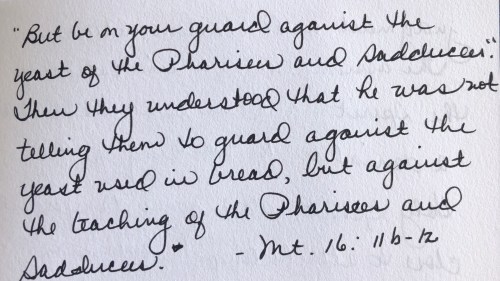 "But be on your guard against the
yeast of the Pharisees and Sadducees."
Then they understood that he was not
telling them to guard against the
yeast used in bread, but against
the teaching of the Pharisees and
Sadducees." - Mt. 16: 11b-12